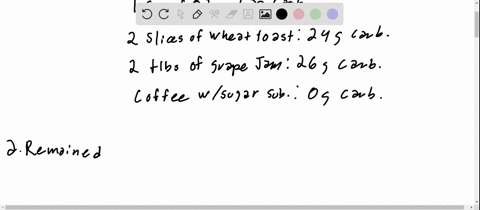 2 slices of wheat toast: 24g carb.
2 tlbs of grape Jam: 26g carb.
Coffee w/sugar sub.: 0g carb.
2. Remained